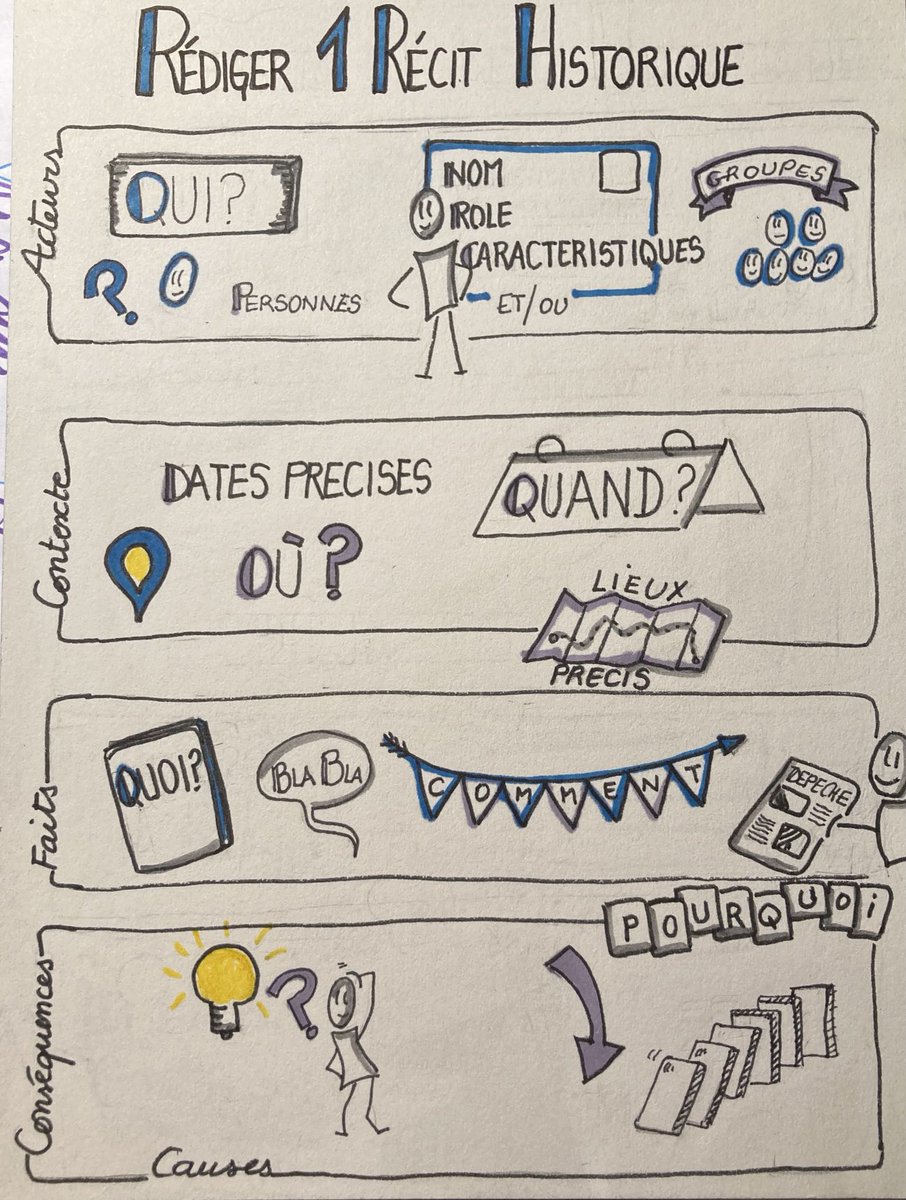 RÉDIGER 1 RÉCIT HISTORIQUE
Acteurs
QUI?
NOM
ROLE
CARACTERISTIQUES
GROUPES
?
PERSONNES
ET/OU
Contexte
DATES PRECISES
QUAND?
OÙ?
LIEUX
PRECIS
Faits
QUOI?
BLA BLA
COMMENT
DEPECHE
POURQUOi
Conséquences
?
Causes